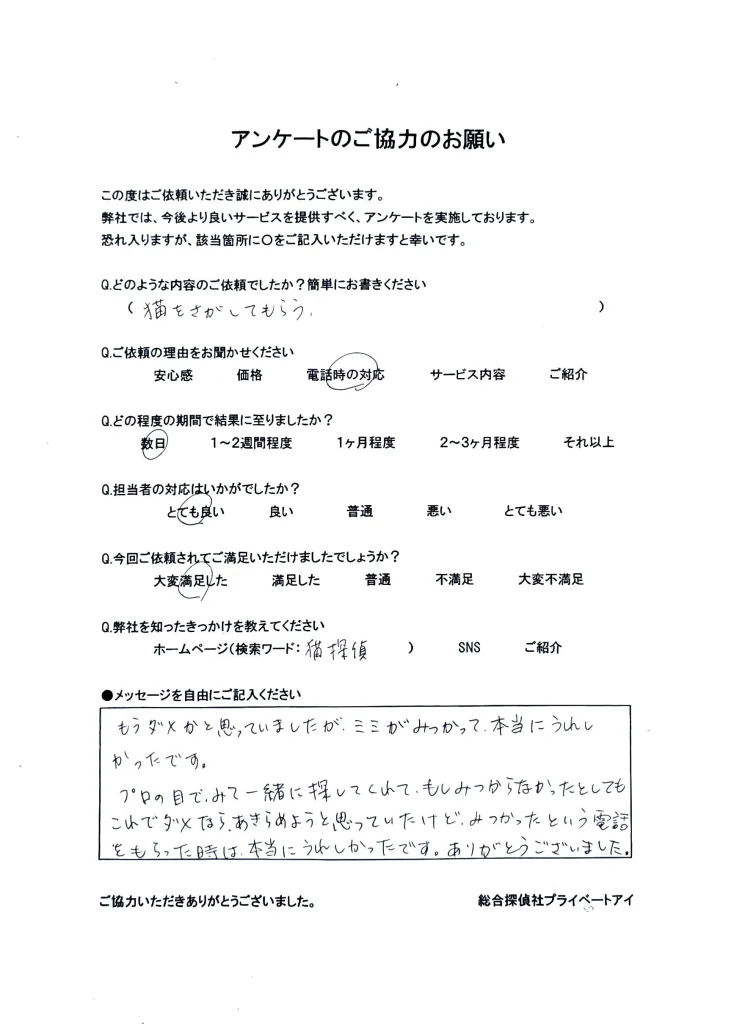 アンケートのご協力のお願い
この度はご依頼いただき誠にありがとうございます。
弊社では、今後より良いサービスを提供すべく、アンケートを実施しております。
恐れ入りますが、該当箇所に〇をご記入いただけますと幸いです。
Q.どのような内容のご依頼でしたか?簡単にお書きください
( 猫をさがしてもらう。 )
Q.ご依頼の理由をお聞かせください
安心感 価格 電話時の対応 サービス内容 ご紹介
Q.どの程度の期間で結果に至りましたか?
数日 1~2週間程度 1ヶ月程度 2~3ヶ月程度 それ以上
Q.担当者の対応はいかがでしたか?
とても良い 良い 普通 悪い とても悪い
Q.今回ご依頼されてご満足いただけましたでしょうか?
大変満足した 満足した 普通 不満足 大変不満足
Q.弊社を知ったきっかけを教えてください
ホームページ(検索ワード: 猫探偵 ) SNS ご紹介
●メッセージを自由にご記入ください
もうダメかと思っていましたが、ミミがみつかって、本当にうれし
かったです。
プロの目で、みて一緒に探してくれて、もしみつからなかったとしても
これでダメなら、あきらめようと思っていたけど、みつかったという電話
をもらった時は、本当にうれしかったです。ありがとうございました。
ご協力いただきありがとうございました。 総合探偵社プライベートアイ